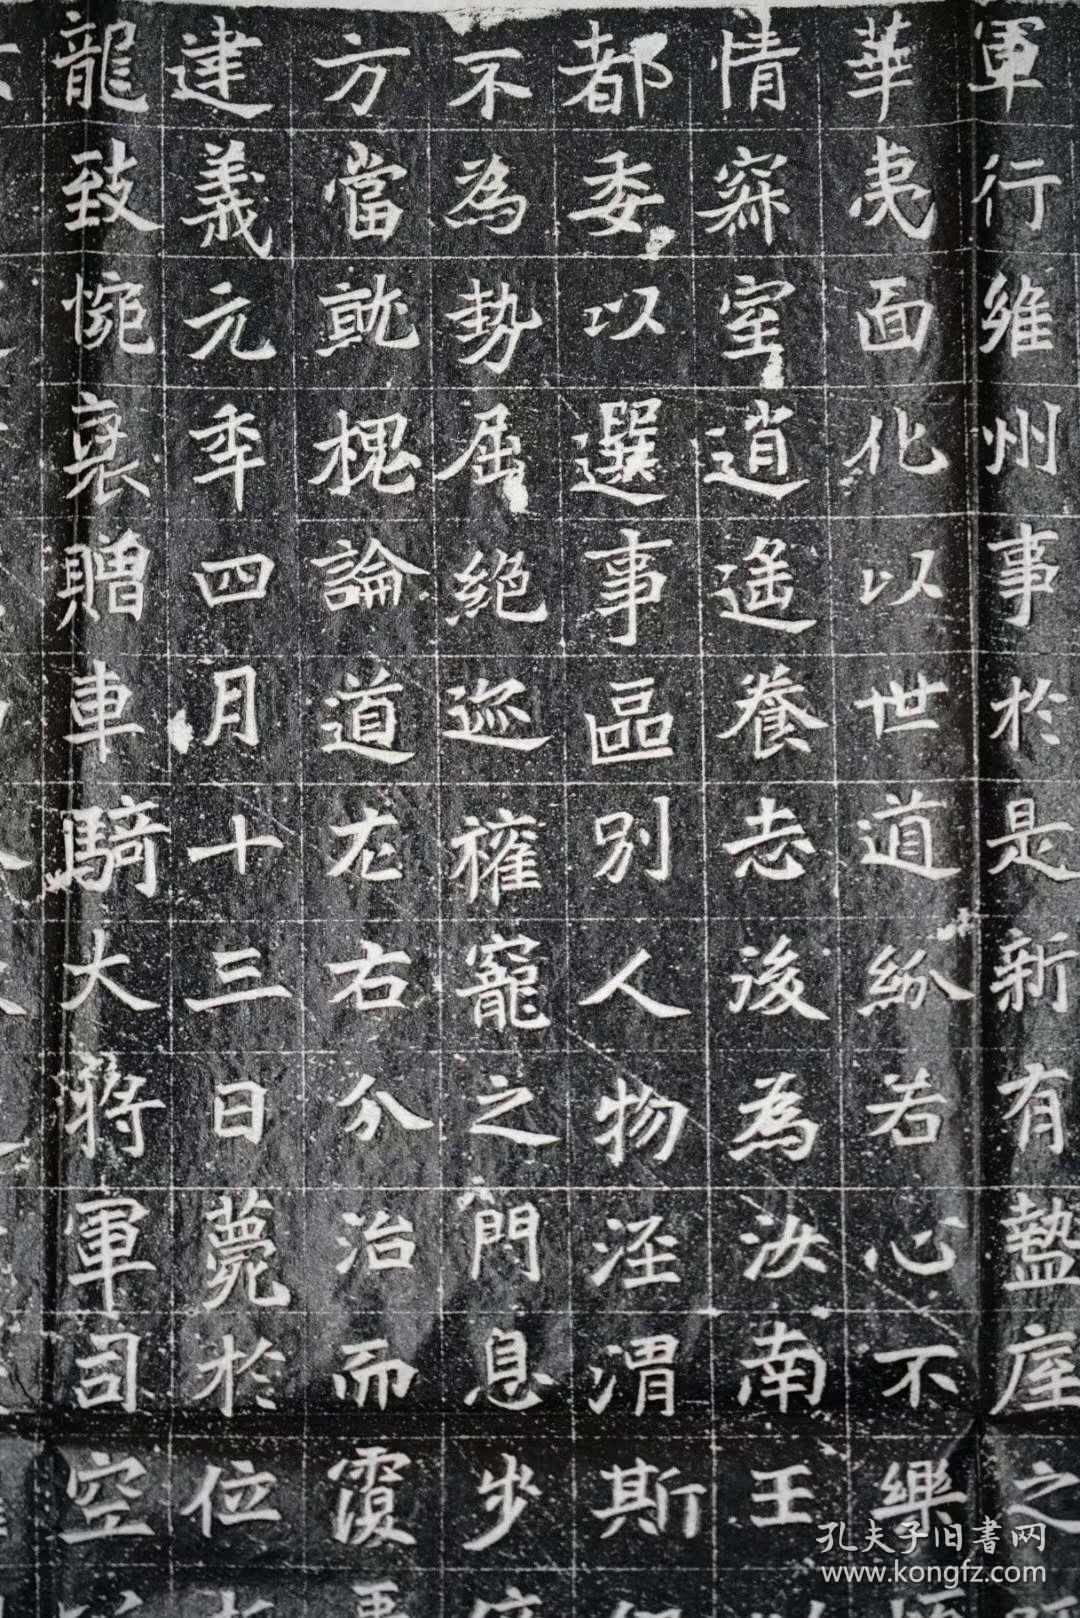 軍行維州事於是新有蟄座之
華夷面化以世道紛若心不樂
情寂室逍遥養志後為汝南王
都委以選事區別人物涇渭斯
不為勢屈絶巡權寵之門息步
方當就槐論道左右分治而霣
建義元年四月十三日薨於位
龍致惋哀贈車騎大將軍司空
孔夫子旧書网
www.kongfz.com